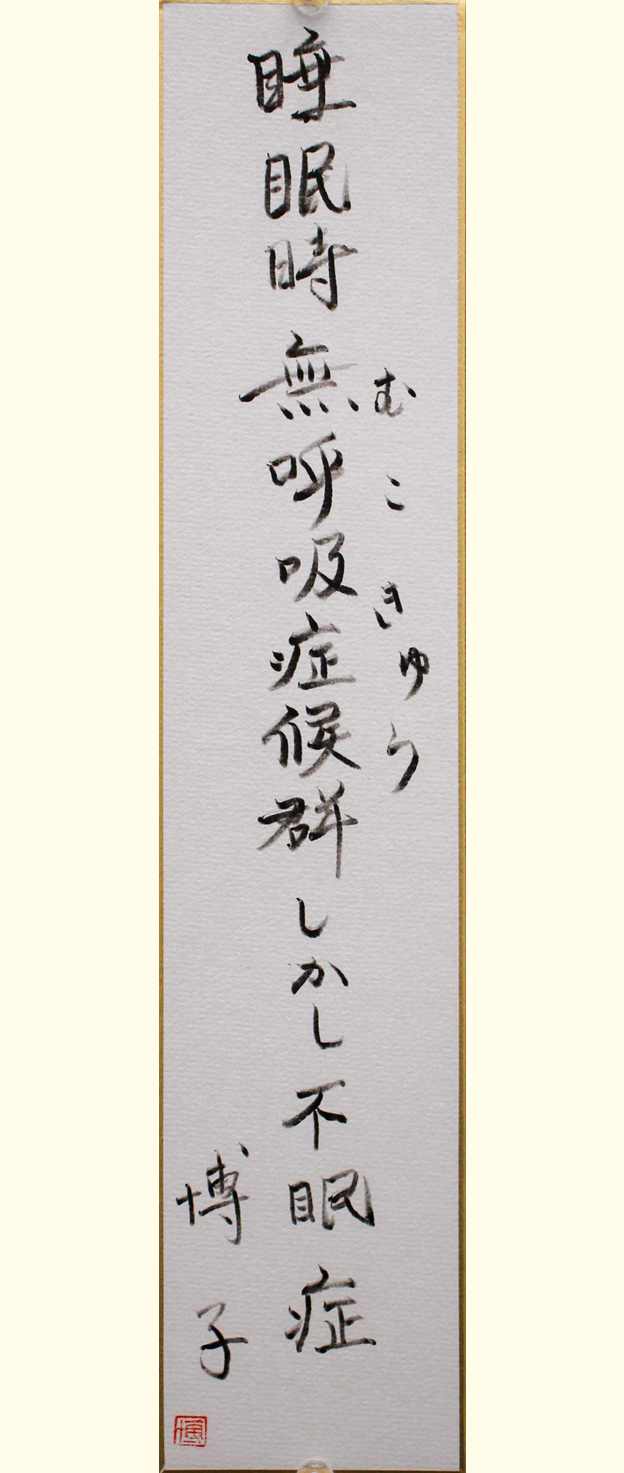 睡眠時無呼吸症候群しかし不眠症
むこきゅう
博子
博